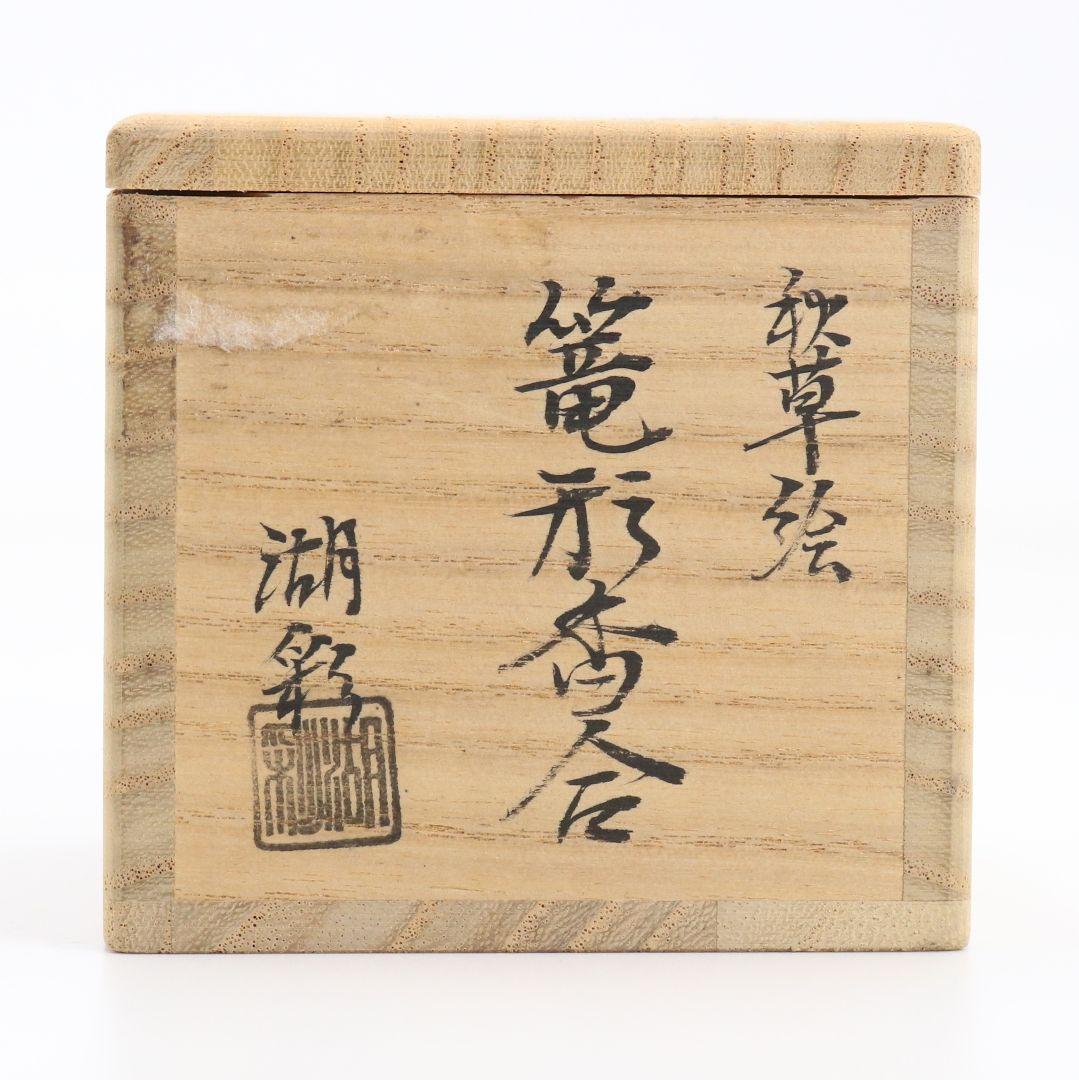 秋草絵
篭形香合
湖彩